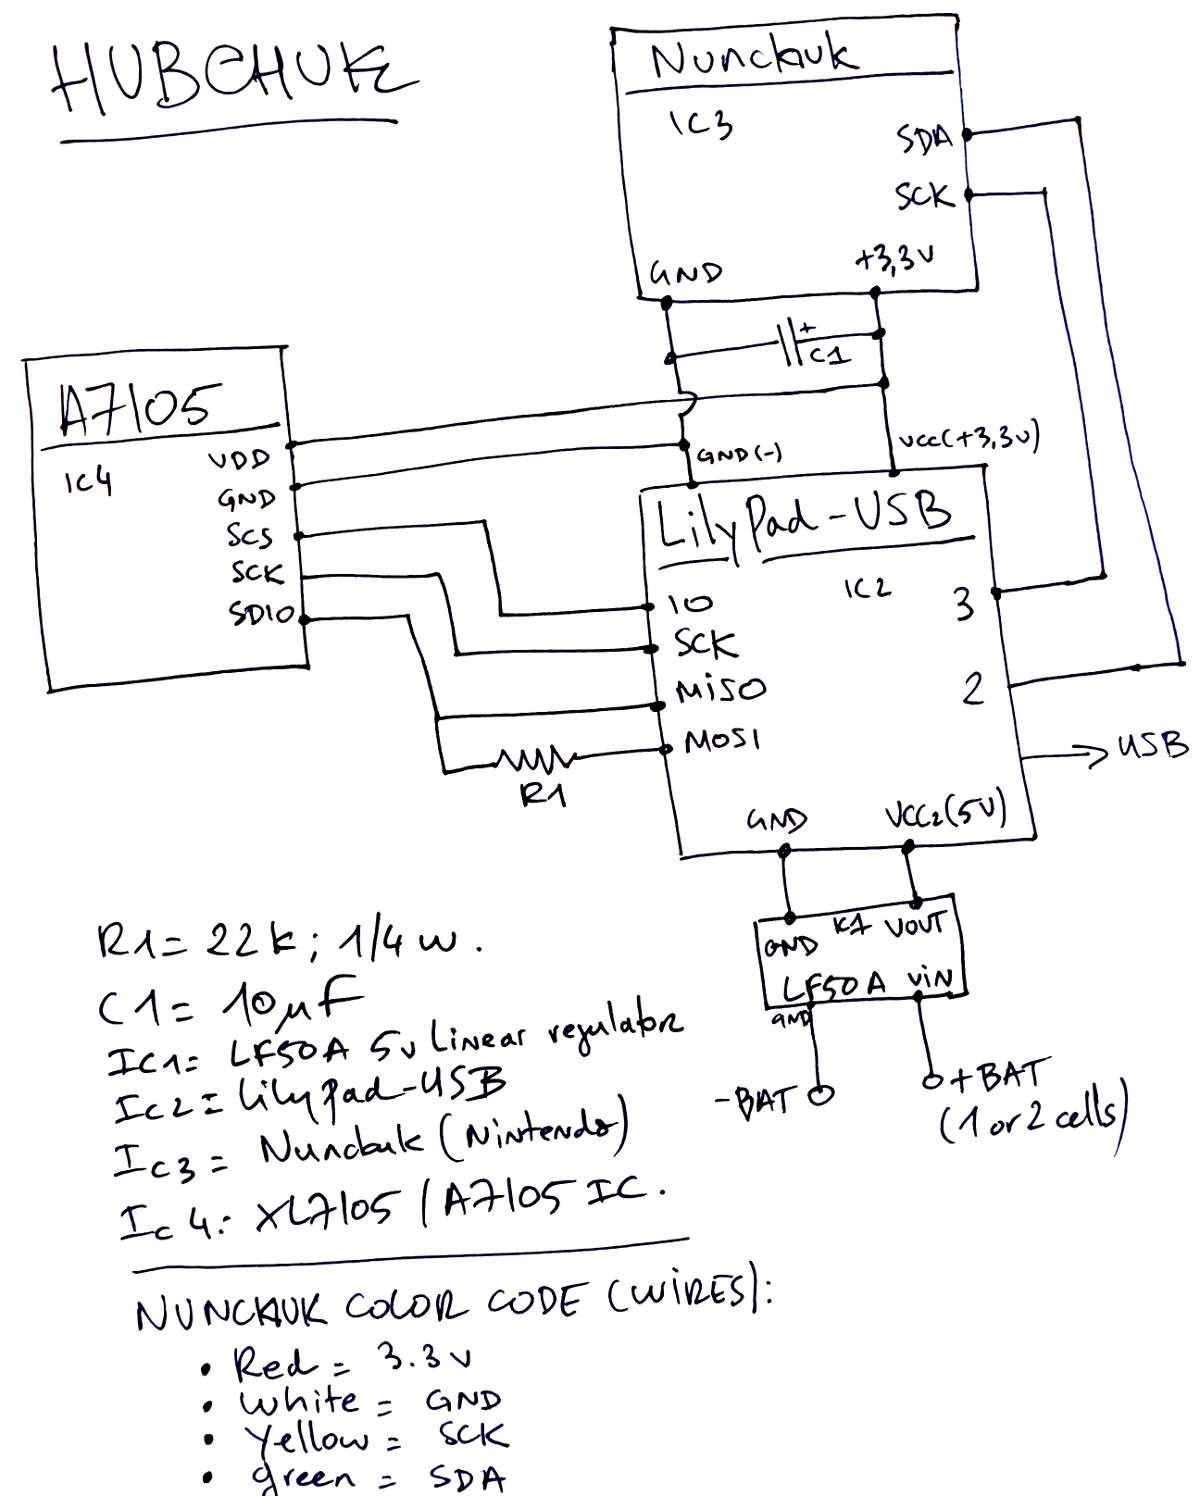 HUBCHUK
Nunchuk
IC3
SDA
SCK
GND
+3,3V
+
C1
A7105
IC4
VDD
GND
SCS
SCK
SDIO
GND(-)
VCC(+3,3V)
LilyPad-USB
IC2
10
SCK
MiSO
MOSI
3
2
USB
R1
GND
VCC2(5V)
GND
K1
VOUT
LF50A
ViN
GND
-BAT
+BAT
(1 or 2 cells)
R1= 22k; 1/4 w.
C1= 10µF
IC1= LF50A 5v Linear regulator
IC2= Lilypad-USB
IC3= Nunchuk (Nintendo)
IC4: XL7105 / A7105 IC.
NUNCHUK COLOR CODE (WiRES):
• Red = 3.3v
• White = GND
• Yellow = SCK
• green = SDA